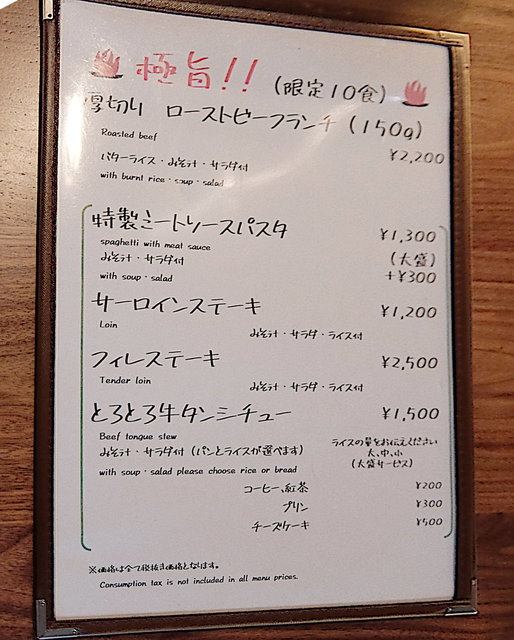 極旨!! (限定10食)
厚切り ローストビーフランチ (150g)
Roasted beef
¥2,200
バターライス・みそ汁・サラダ付
with burnt rice・soup・salad
特製ミートソースパスタ ¥1,300
spaghetti with meat sauce
みそ汁・サラダ付 (大盛)
with soup・salad +¥300
サーロインステーキ ¥1,200
Loin
みそ汁・サラダ・ライス付
フィレステーキ ¥2,500
Tender loin
みそ汁・サラダ・ライス付
とろとろ牛タンシチュー ¥1,500
Beef tongue stew
ライスの量をお伝えください
みそ汁・サラダ付 (パンとライスが選べます) 大、中、小
(大盛サービス)
with soup・salad please choose rice or bread
コーヒー、紅茶 ¥200
プリン ¥300
チーズケーキ ¥500
※価格は全て税抜き価格となります。
Consumption tax is not included in all menu prices.